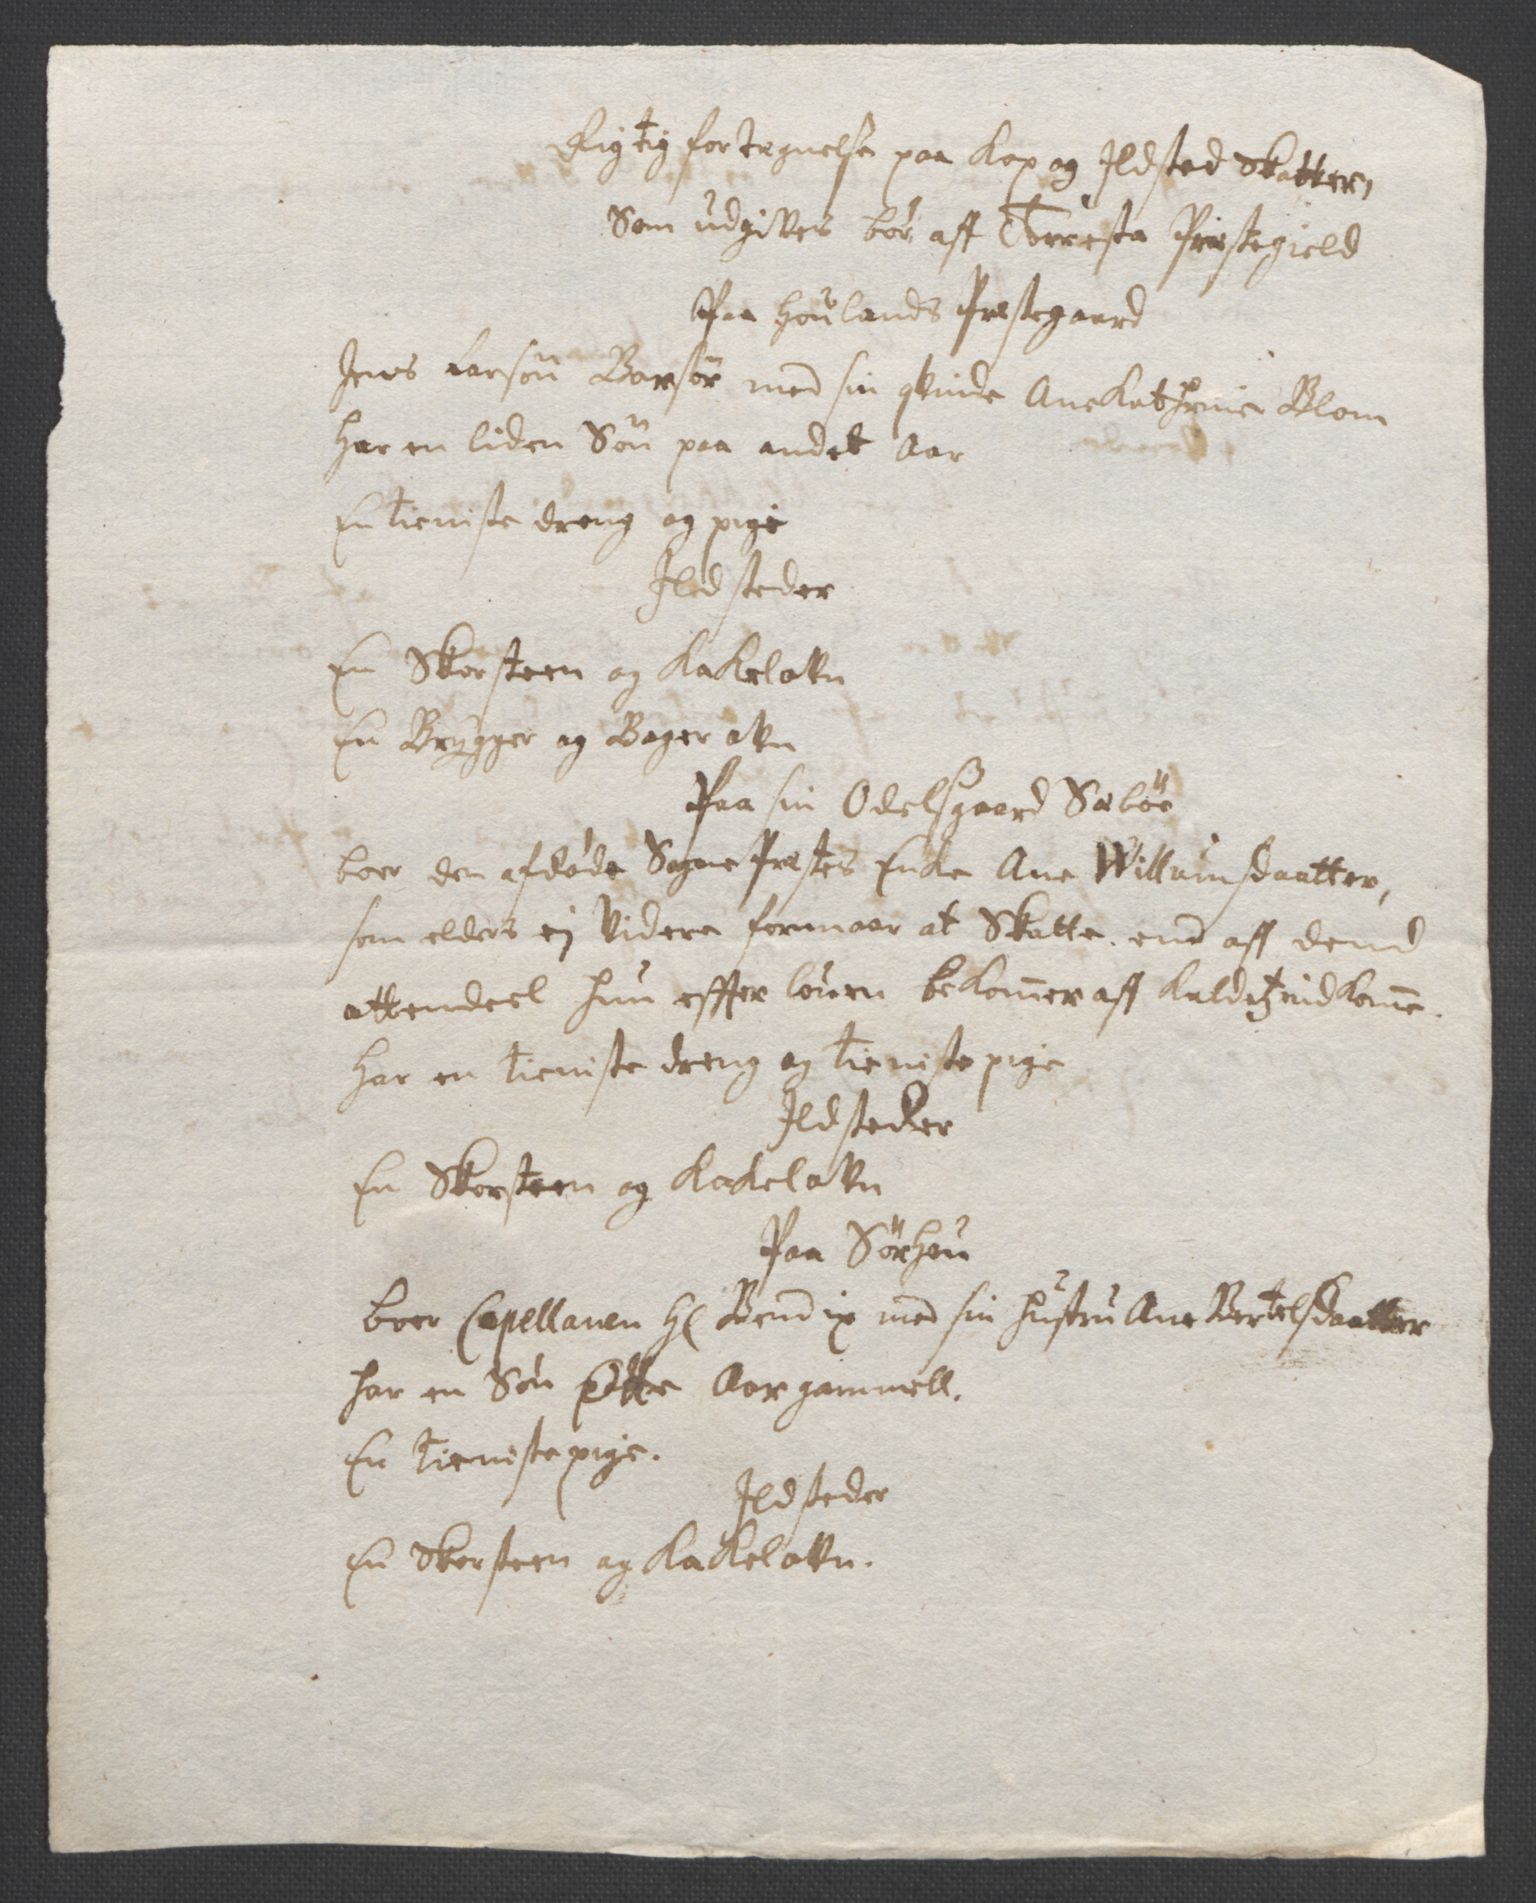 Rigtig fortegnelse paa Kop og Ildsted Skatter,
Som udgives bör aff Torresta Præstegield
Paa Houlands Præstegaard
Jens Larsön Barsör med sin qvinde Ane Kathrine Blom
har en liden Sön paa andet Aar
En tieniste dreng og pige
Ildsteder
En Skorsteen og Kakelovn
En Brygger og Bager ovn
Paa sin Odelsgaard Sæböe
boer den afdöde Sogne Prestes Enke Ane Willumsdaatter,
som elders ej videre formaar at Skatte. end aff dend
attendeel hun effter loven bekommer aff Kaldetz indkomme.
har en tieniste dreng og tieniste pige
Ildsteder
En Skorsteen og Kakelovn
Paa Sörhou
boer Capellanen Hr Bendix med sin hustru Ane Bertelsdaatter
har en Sön otte Aar gammell.
En tieniste pige.
Ildsteder
En Skorsteen og Kakelovn.